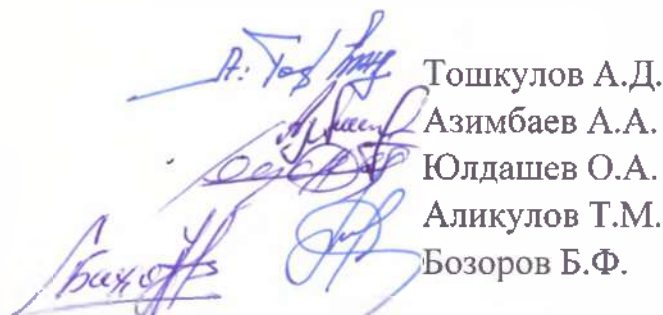 Тошкулов А.Д.
Азимбаев А.А.
Юлдашев О.А.
Аликулов Т.М.
Бозоров Б.Ф.